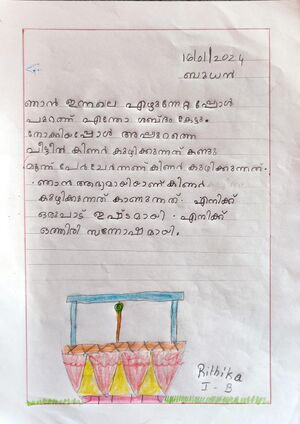 16/01/2024
ബുധൻ
ഞാൻ ഇന്നലെ എഴുന്നേറ്റപ്പോൾ
പുറത്ത് എന്തോ ശബ്ദം കേട്ടു.
നോക്കിയപ്പോൾ അപ്പുറത്തെ
വീട്ടിൽ കിണർ കുഴിക്കുന്നത് കണ്ടു
മൂന്ന് പേർ ചേർന്നാണ് കിണർ കുഴിക്കുന്നത്.
ഞാൻ ആദ്യമായിയാണ് കിണർ
കുഴിക്കുന്നത് കാണുന്നത്. എനിക്ക്
ഒരുപാട് ഇഷ്ടമായി. എനിക്ക്
ഒത്തിരി സന്തോഷമായി.
Rithika
I - B